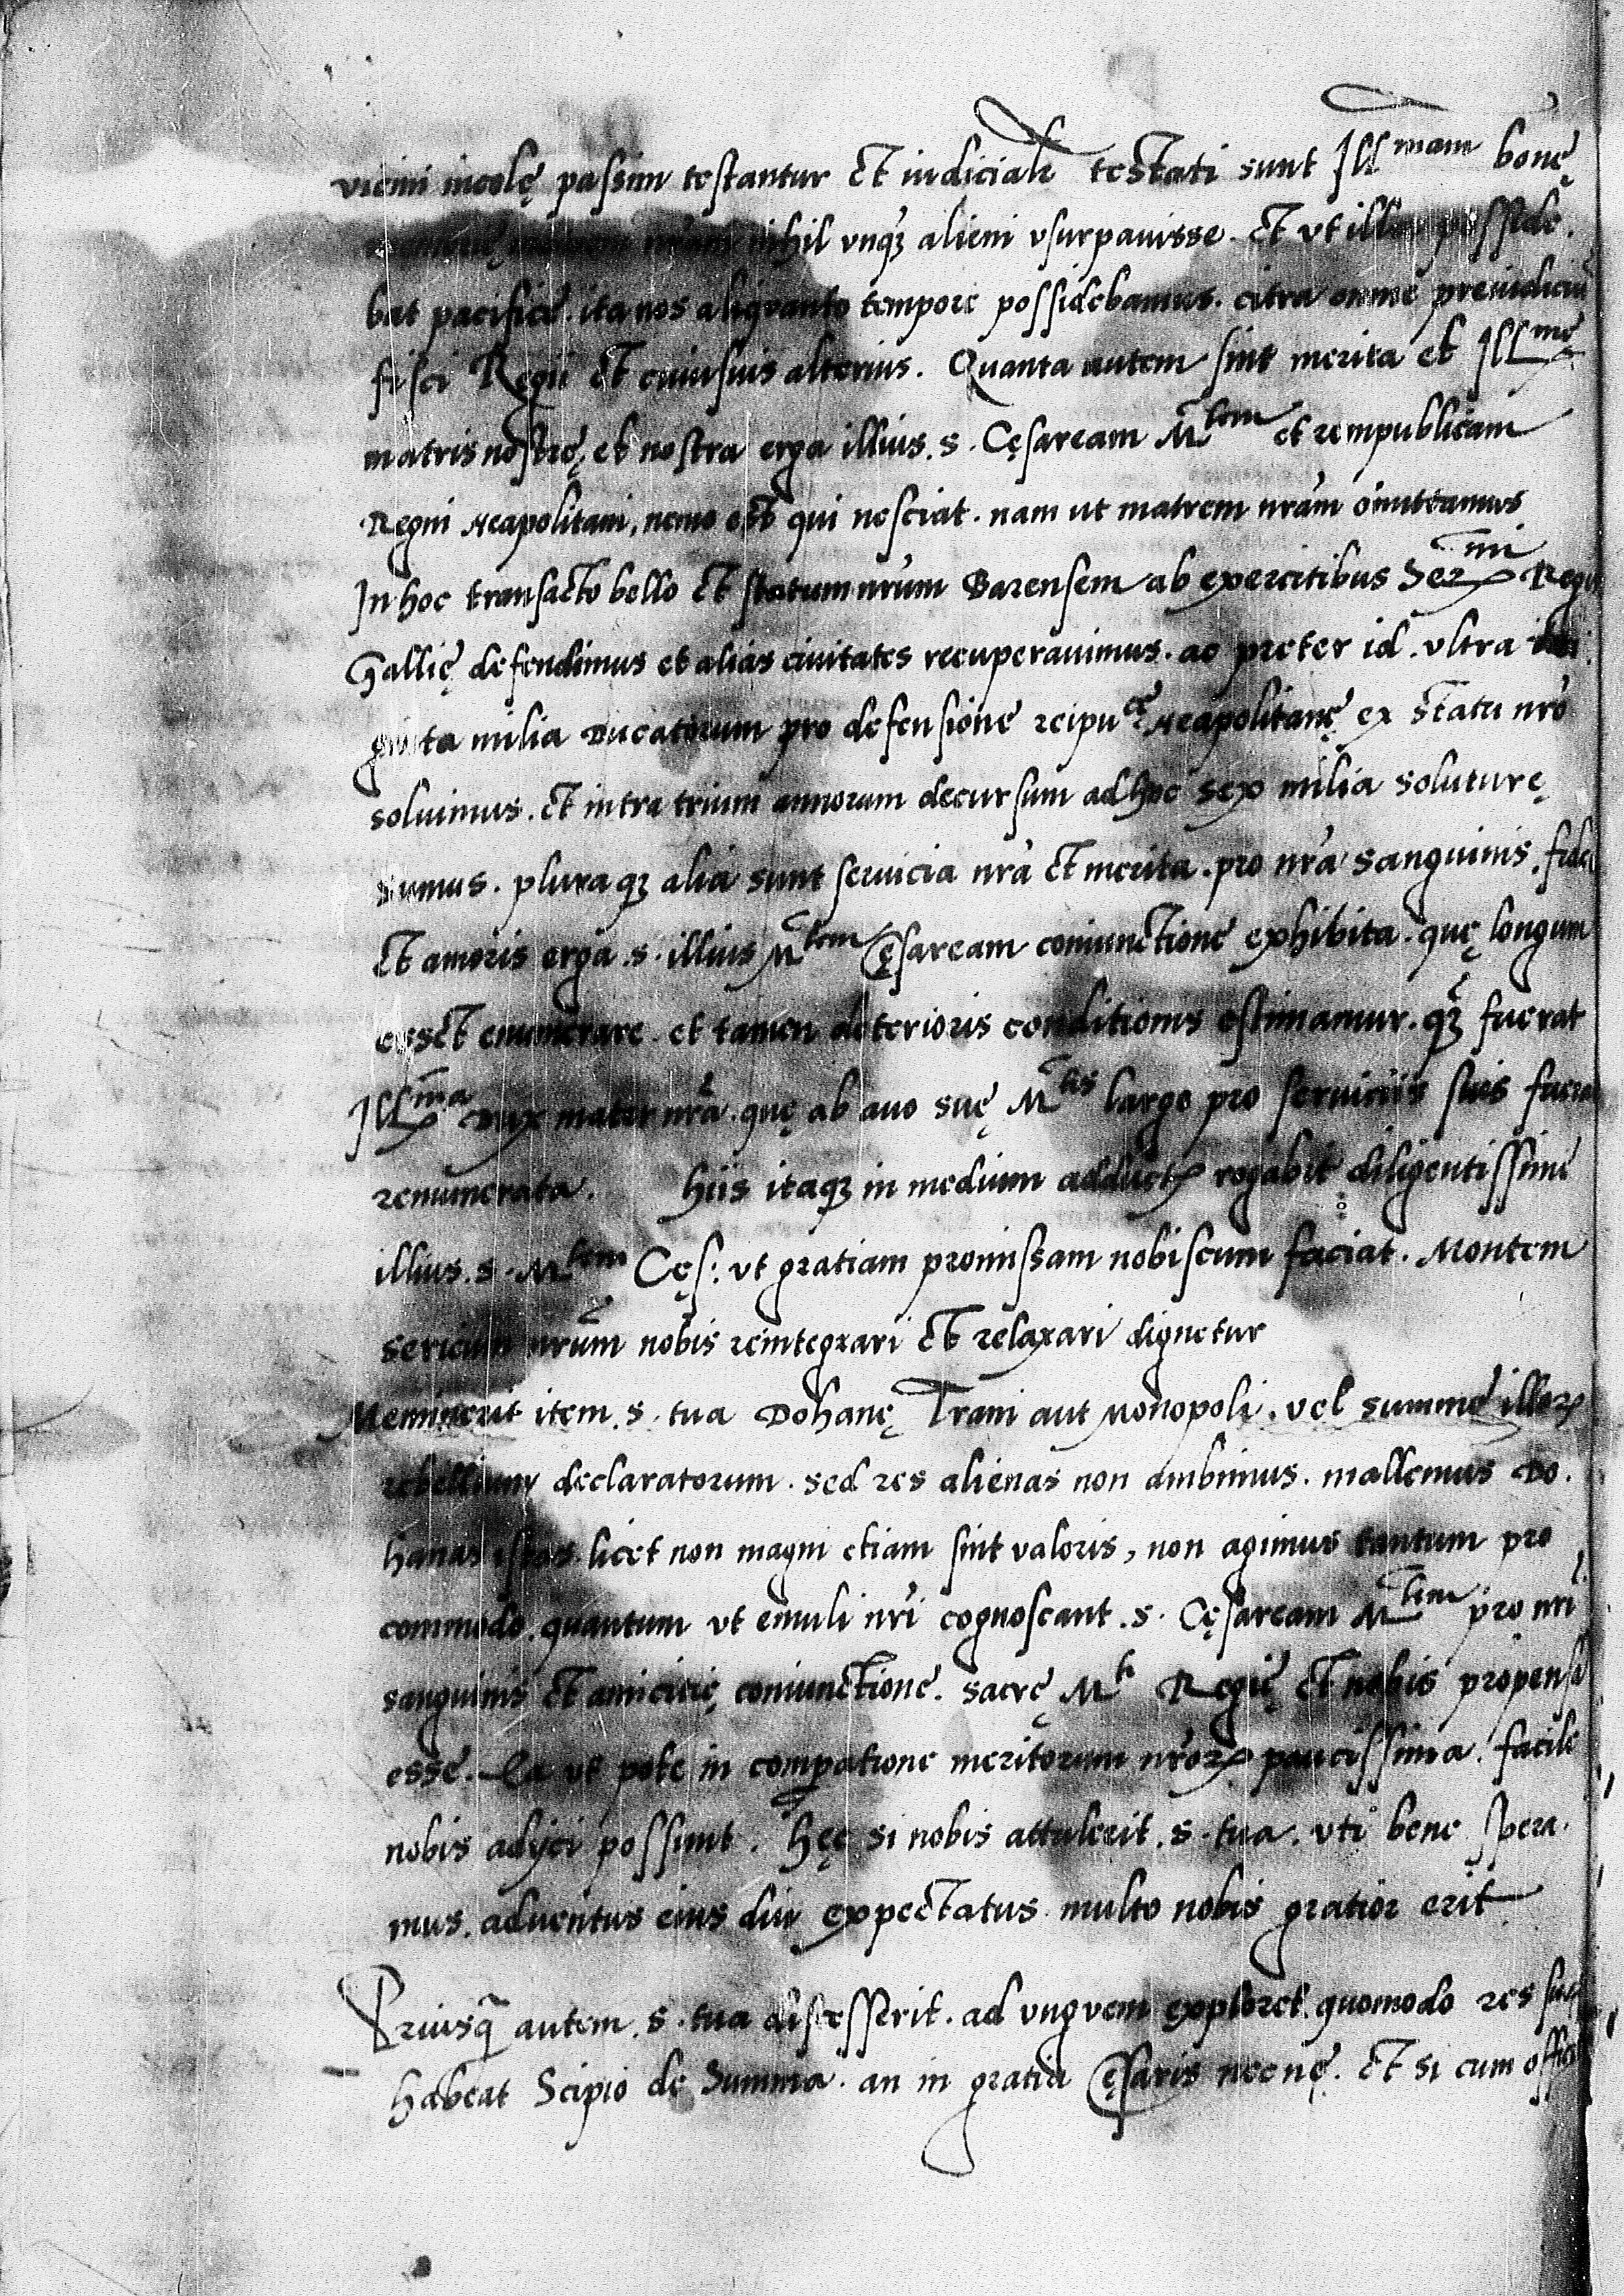 vicini incolę passim testantur et iudicialr testati sunt Illmam bonę
nihil vnqꝫ alieni vsurpauisse. Et vt illa posside.
bat pacifice. ita nos aliquanto tempore possidebamus. citra omne preiudiciū
fisci Regii et cuiusuis alterius. Quanta autem sint merita et Illmę
matris nostrę, et nostra erga illius. s. Cęsaream Mtem et rempublicam
Regni Neapolitani, nemo est qui nesciat. nam ut matrem nr̄am omittamus
In hoc transacto bello et statum nr̄um Barensem ab exercitibus Sermi Regis
Gallię defendimus et alias ciuitates recuperauimus. ac preter id. vltra
ginta milia Ducatorum pro defensione reipucę Neapolitanę ex statu nr̄o
soluimus. Et intra trium annorum decursum adhoc sex milia soluturę
sumus. pluraqꝫ alia sunt seruicia nr̄a et merita. pro nr̄a sanguinis. fidei
et amoris erga. s. illius Mtem Cęsaream coniunctione exhibita. quę longum
esset enumerare. et tamen deterioris conditionis estimamur. qꝫ fuerat
Illma Dux mater nr̄a. quę ab auo suę Mtis large pro seruiciis suis fuerat
remunerata. Hiis itaqꝫ in medium adductꝭ rogabit diligentissime
illius. s. Mtem Cęs: vt gratiam promissam nobiscum faciat. Montem
sericum nr̄um nobis reintegrari et relaxari dignetur
Meminerit item. s. tua Dohanę Trani aut Monopoli. vel summe illorꝝ
rebellium declaratorum. sed res alienas non ambimus. mallemus Do.
hanas istas. licet non magni etiam sint valoris, non agimus tantum pro
commodo. quantum vt emuli nr̄i cognoscant. s. Cęsaream Mtem pro nr̄i
sanguinis et amicicię coniunctione. sacrę Mti Regię et nobis propensā
esse. Ea vt pote in comparatione meritorum nr̄orꝝ paucissima. facile
nobis adijci possunt. Hęc si nobis attulerit. s. tua. vti bene spera.
mus. aduentus eius diu expectatus multo nobis gratior erit
Priusq̄ autem. s. tua discesserit. ad vnguem exploret. quomodo res suas
habeat Scipio de Summa. an in gratia Cęsaris necnę. Et si cum